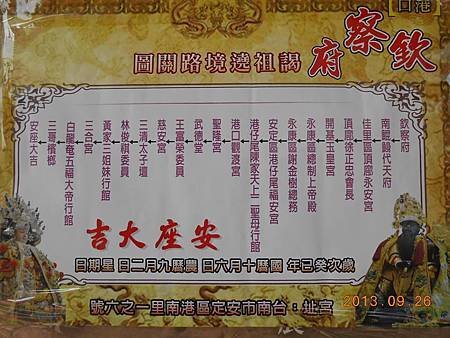 港口
欽察府
謁祖遶境路關圖
欽察府
南鯤鯓代天府
佳里區頂廍永安宮
頂廍徐正忠會長
開基玉皇宮
永康區總制上帝殿
永康區謝金樹總務
安定區港仔尾福安宮
港仔尾陳家天上二聖母行館
港口觀渡宮
聖隆宮
武德堂
王富榮委員
慈安宮
三清太子壇
林俊棋委員
黃家三姐妹行館
三合宮
白龍庵五福大帝行館
三哥檳榔
安座大吉
安座大吉
歲次癸巳年 國曆十月六日 農曆九月二日 星期日
宮址：台南市安定區港南里一之六號
2013.09.26